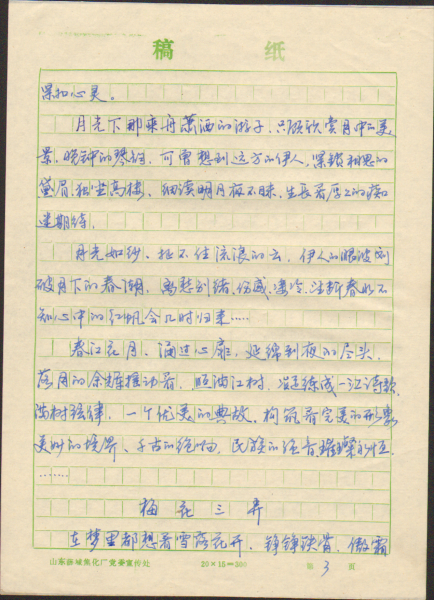 稿 纸
累和心灵。
月光下那乘舟潇洒的游子,只顾欣赏月中的美
景,晚钟的琴韵,可曾想到远方的伊人,深锁相思的
黛眉,独坐高楼,细读明月夜不眠,生长着唇上的痴
迷期待。
月光如纱,扯不住流浪的云,伊人的眼波划
破月下的春潮,离愁别绪,伤感、凄冷,注断春水不
知心中的红帆会几时归来……
春江花月,涌过心扉,延绵到夜的尽头,
落月的余辉推动着,照油江树,凝练成一江诗韵,
满树弦律,一个优美的典故,构筑着完美的形象
美妙的境界、千古的绝唱,民族的经音,璀璨永恒
………
梅花三弄
在梦里都想着雪落花开,铮铮铁骨,傲霜
山东 厂党委宣传处
20×15=300
第3页